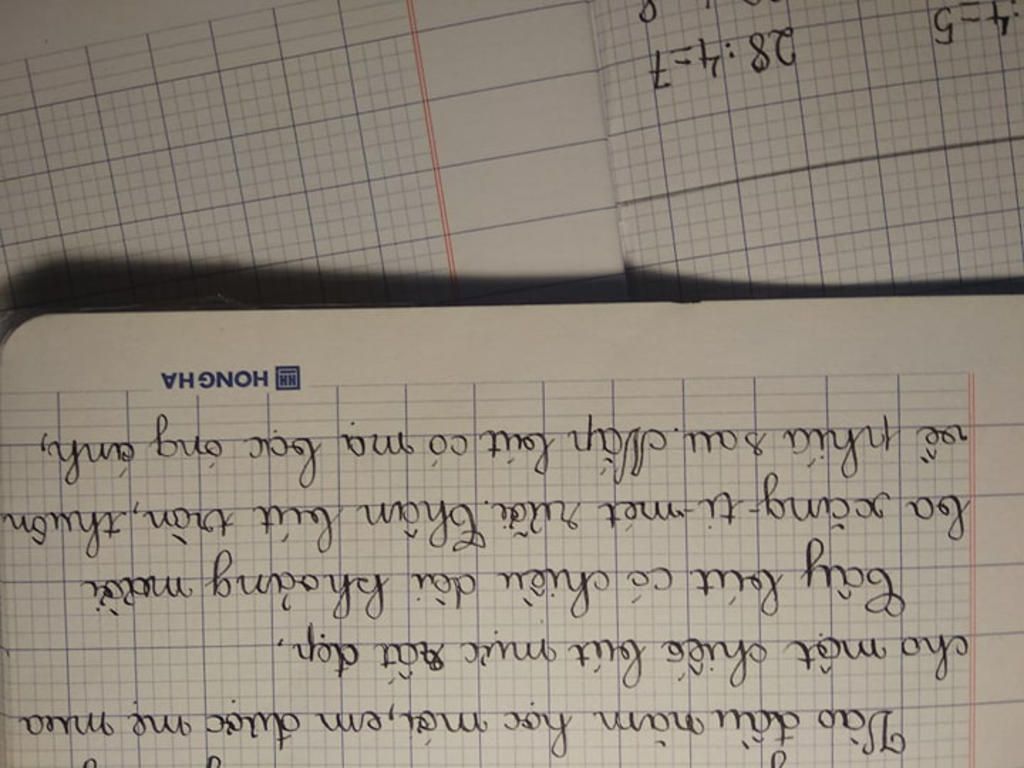 Vào đầu năm học mới, em được mẹ mua
cho một chiếc bút mực rất đẹp.
Cây bút có chiều dài khoảng mười
ba xăng-ti-mét rưỡi. Thân bút tròn, thuôn
về phía sau. Nắp bút có mạ bạc óng ánh,
HONG HA
28:4=7
:4=5